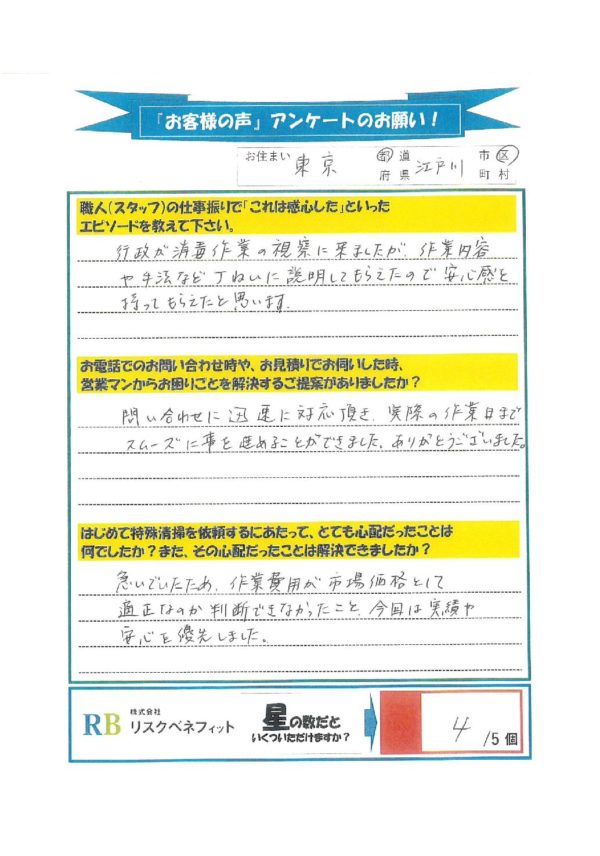 『お客様の声』アンケートのお願い！
お住まい 東京 都道府県 江戸川 市区町村
職人（スタッフ）の仕事振りで「これは感心した」といった
エピソードを教えて下さい。
行政が消毒作業の視察に来ましたが、作業内容
や手法など丁ねいに説明してもらえたので安心感を
持ってもらえたと思います。
お電話でのお問い合わせ時や、お見積りでお伺いした時、
営業マンからお困りごとを解決するご提案がありましたか？
問い合わせに迅速に対応頂き、実際の作業日まで
スムーズに事を進めることができました。ありがとうございました。
はじめて特殊清掃を依頼するにあたって、とても心配だったことは
何でしたか？また、その心配だったことは解決できましたか？
急いでいたため、作業費用が市場価格として
適正なのか判断できなかったこと、今回は実績や
安心を優先しました。
RB 株式会社 リスクベネフィット
星の数だと
いくついただけますか？
4 /5個